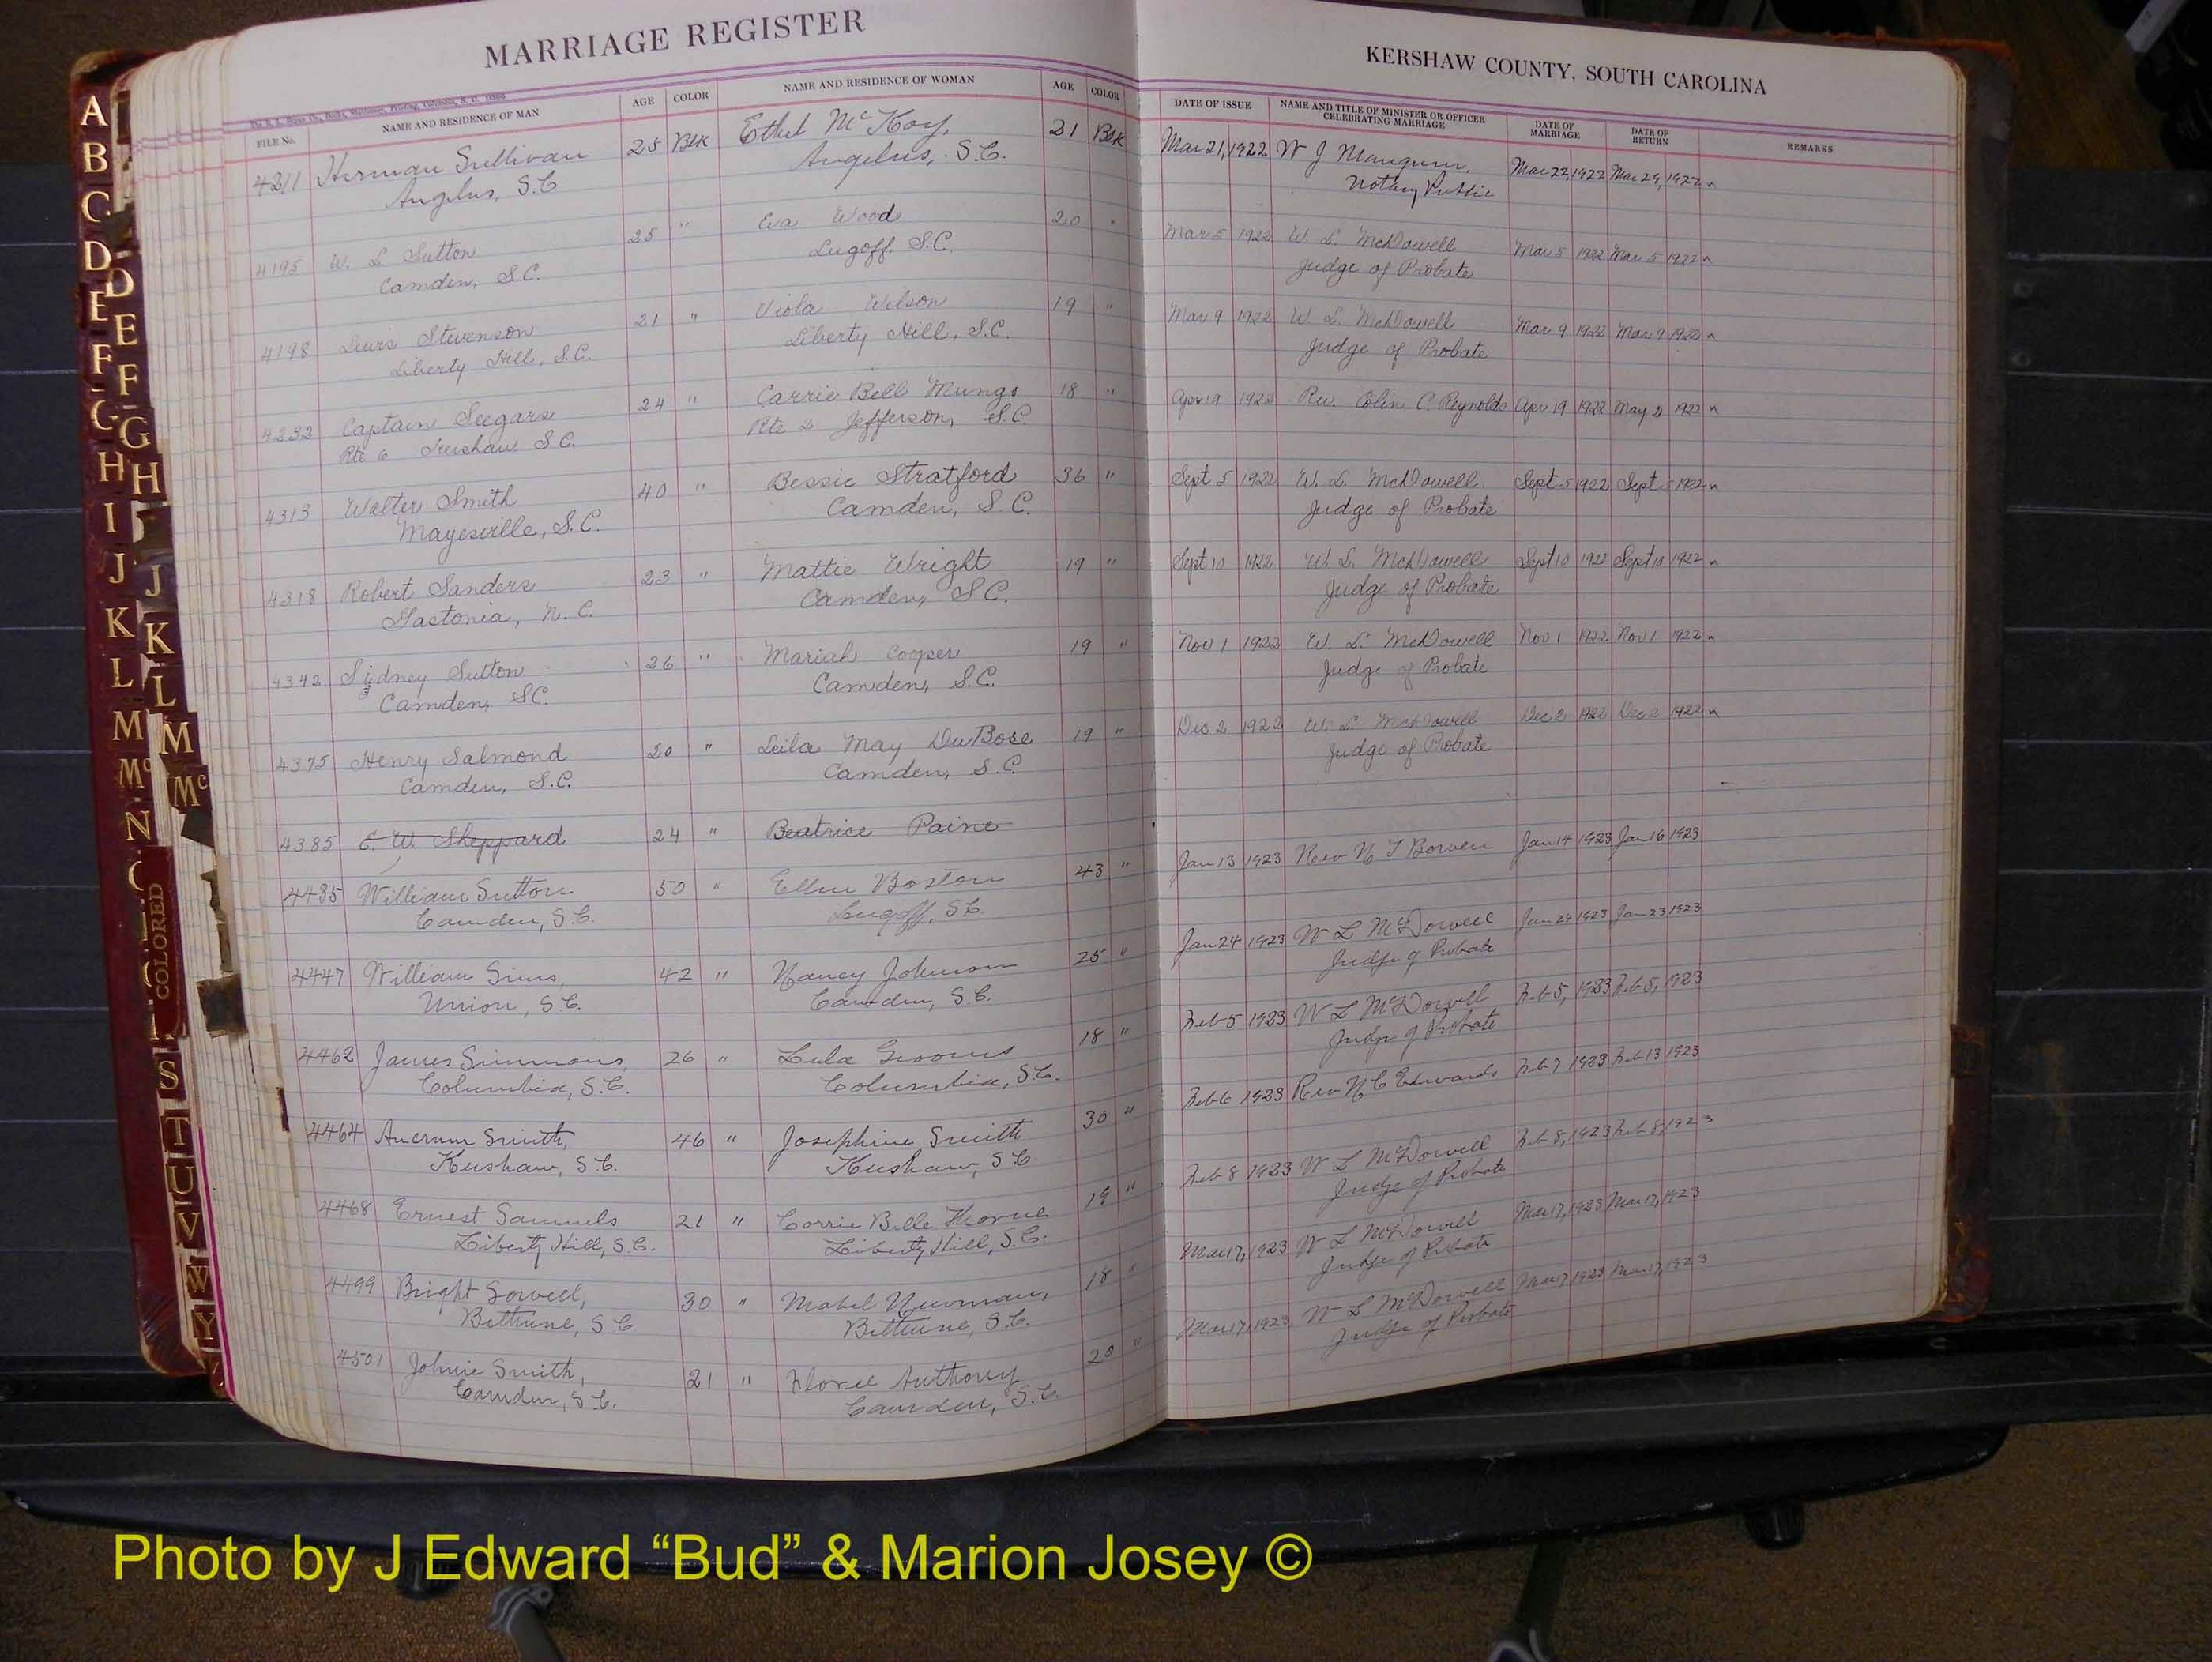 MARRIAGE REGISTER
KERSHAW COUNTY, SOUTH CAROLINA
FILE No. NAME AND RESIDENCE OF MAN AGE COLOR NAME AND RESIDENCE OF WOMAN AGE COLOR DATE OF ISSUE NAME AND TITLE OF MINISTER OR OFFICER CELEBRATING MARRIAGE DATE OF MARRIAGE DATE OF RETURN REMARKS
4211 Herman Sullivan 25 Blk Ethel McKoy, 21 Blk Mar 21, 1922 W J Mangum, Mar 22, 1922 Mar 29, 1922
Angelus, S.C. Angelus, S.C. Notary Public
4195 W. L. Sutton 25 " Eva Wood 20 " Mar 5 1922 W. L. McDowell Mar 5 1922 Mar 5 1922
Camden, S.C. Lugoff, S.C. Judge of Probate
4198 Lewis Stevenson 21 " Viola Wilson 19 " Mar 9 1922 W. L. McDowell Mar 9 1922 Mar 9 1922
Liberty Hill, S.C. Liberty Hill, S.C. Judge of Probate
4232 Captain Seegars 24 " Carrie Bell Mungo 18 " Apr 19 1922 Rev. Colin C. Reynolds Apr 19 1922 May 2 1922
Rte 6 Kershaw S.C. Rte 2 Jefferson, S.C.
4313 Walter Smith 40 " Bessie Stratford 36 " Sept 5 1922 W. L. McDowell Sept 5 1922 Sept 5 1922
Mayesville, S.C. Camden, S.C. Judge of Probate
4318 Robert Sanders 23 " Mattie Wright 19 " Sept 10 1922 W. L. McDowell Sept 10 1922 Sept 10 1922
Gastonia, N.C. Camden, S.C. Judge of Probate
4342 Sydney Sutton 26 " Mariah Cooper 19 " Nov 1 1922 W. L. McDowell Nov 1 1922 Nov 1 1922
Camden, S.C. Camden, S.C. Judge of Probate
4375 Henry Salmond 20 " Leila May DuBose 19 " Dec 2 1922 W. L. McDowell Dec 2 1922 Dec 2 1922
Camden, S.C. Camden, S.C. Judge of Probate
4385 E. W. Sheppard 24 " Beatrice Paine
4435 William Sutton 50 " Ellen Boston 43 " Jan 13 1923 Rev N T Bowen Jan 14 1923 Jan 16 1923
Camden, S.C. Lugoff, S.C.
4447 William Sims, 42 " Nancy Johnson 25 " Jan 24 1923 W L McDowell Jan 24 1923 Jan 23 1923
Union, S.C. Camden, S.C. Judge of Probate
4462 James Simmons, 26 " Lula Grooms 18 " Feb 5 1923 W L McDowell Feb 5, 1923 Feb 5, 1923
Columbia, S.C. Columbia, S.C. Judge of Probate
4464 Ancrum Smith, 46 " Josephine Smith 30 " Feb 6 1923 Rev N C Edwards Feb 7 1923 Feb 13 1923
Kershaw, S.C. Kershaw, S.C.
4468 Ernest Samuels 21 " Corrie Belle Thorne 19 " Feb 8 1923 W L McDowell Feb 8, 1923 Feb 8, 1923
Liberty Hill, S.C. Liberty Hill, S.C. Judge of Probate
4499 Bright Sowell, 30 " Mabel Newman, 18 " Mar 17, 1923 W L McDowell Mar 17, 1923 Mar 17, 1923
Bethune, S.C. Bethune, S.C. Judge of Probate
4501 Johnie Smith, 21 " Anthony 20 " Mar 17, 1923 W L McDowell Mar 17 1923 Mar 17, 1923
Camden, S.C. Camden, S.C. Judge of Probate
A
B
C
D D
E E
F F
G G
H H
I
J J
K K
L L
M M
Mc Mc
N
COLORED
S
T
U
V
W
Y
Photo by J Edward “Bud” & Marion Josey ©